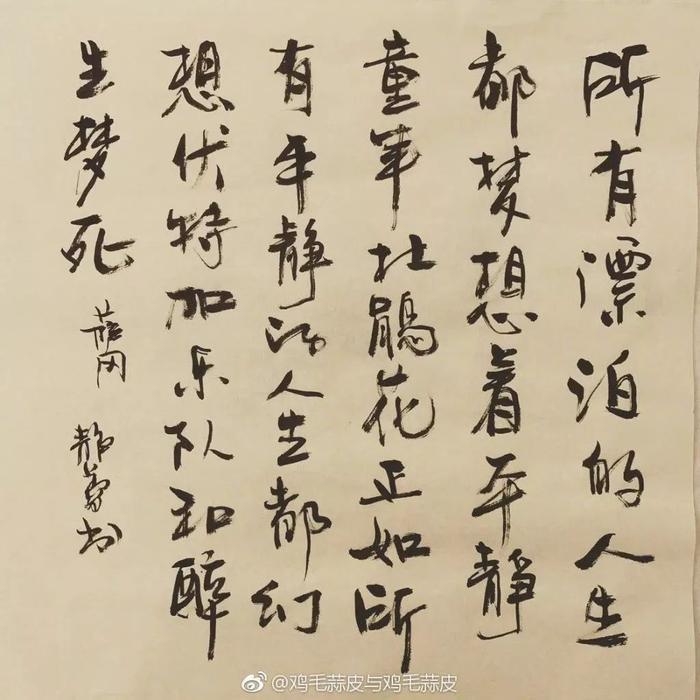 所有漂泊的人生
都梦想着平静
童年杜鹃花正如所
有平静的人生都幻
想伏特加乐队和醉
生梦死
萨冈
书
@鸡毛蒜皮与鸡毛蒜皮